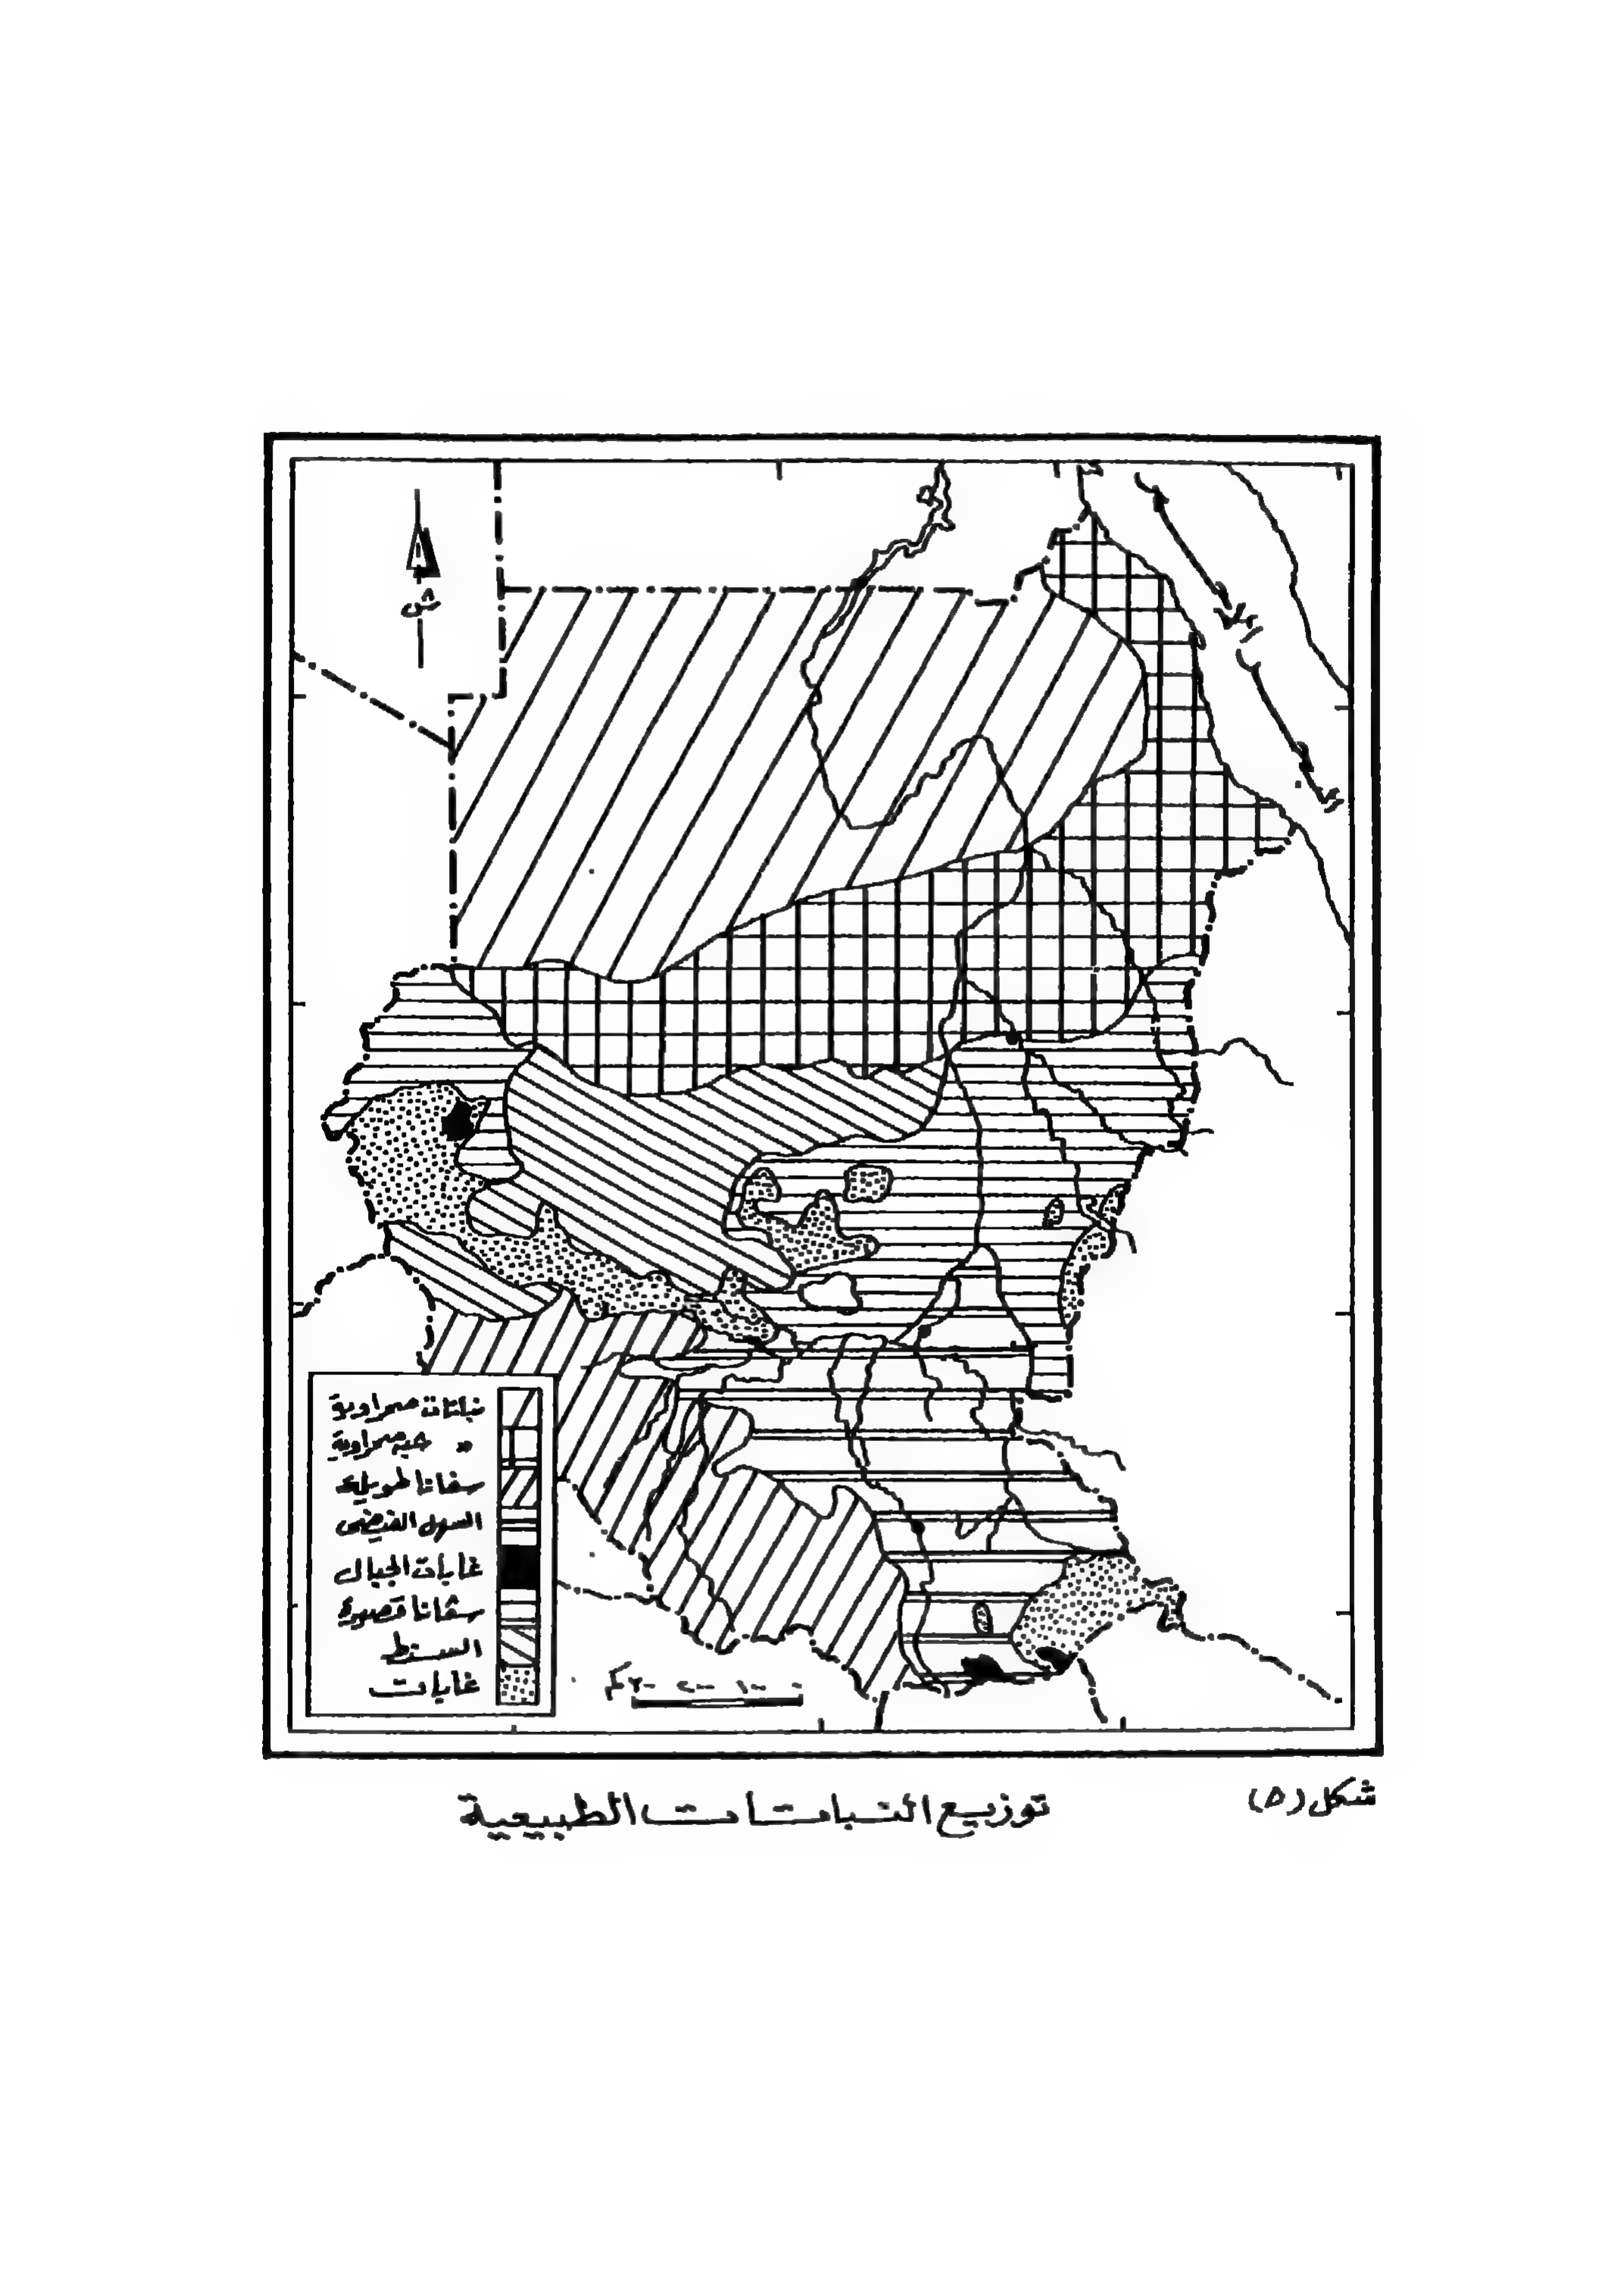 ش
نباتات صحراوية
" شبه صحراوية
سفانا طويلة
السهل الفيضى
غابات الجبال
سفانا قصيرة
السنط
غابات
٠ ١٠٠ ٢٠٠ ٣٠٠ كم
شكل (٥)
توزيع النباتات الطبيعية